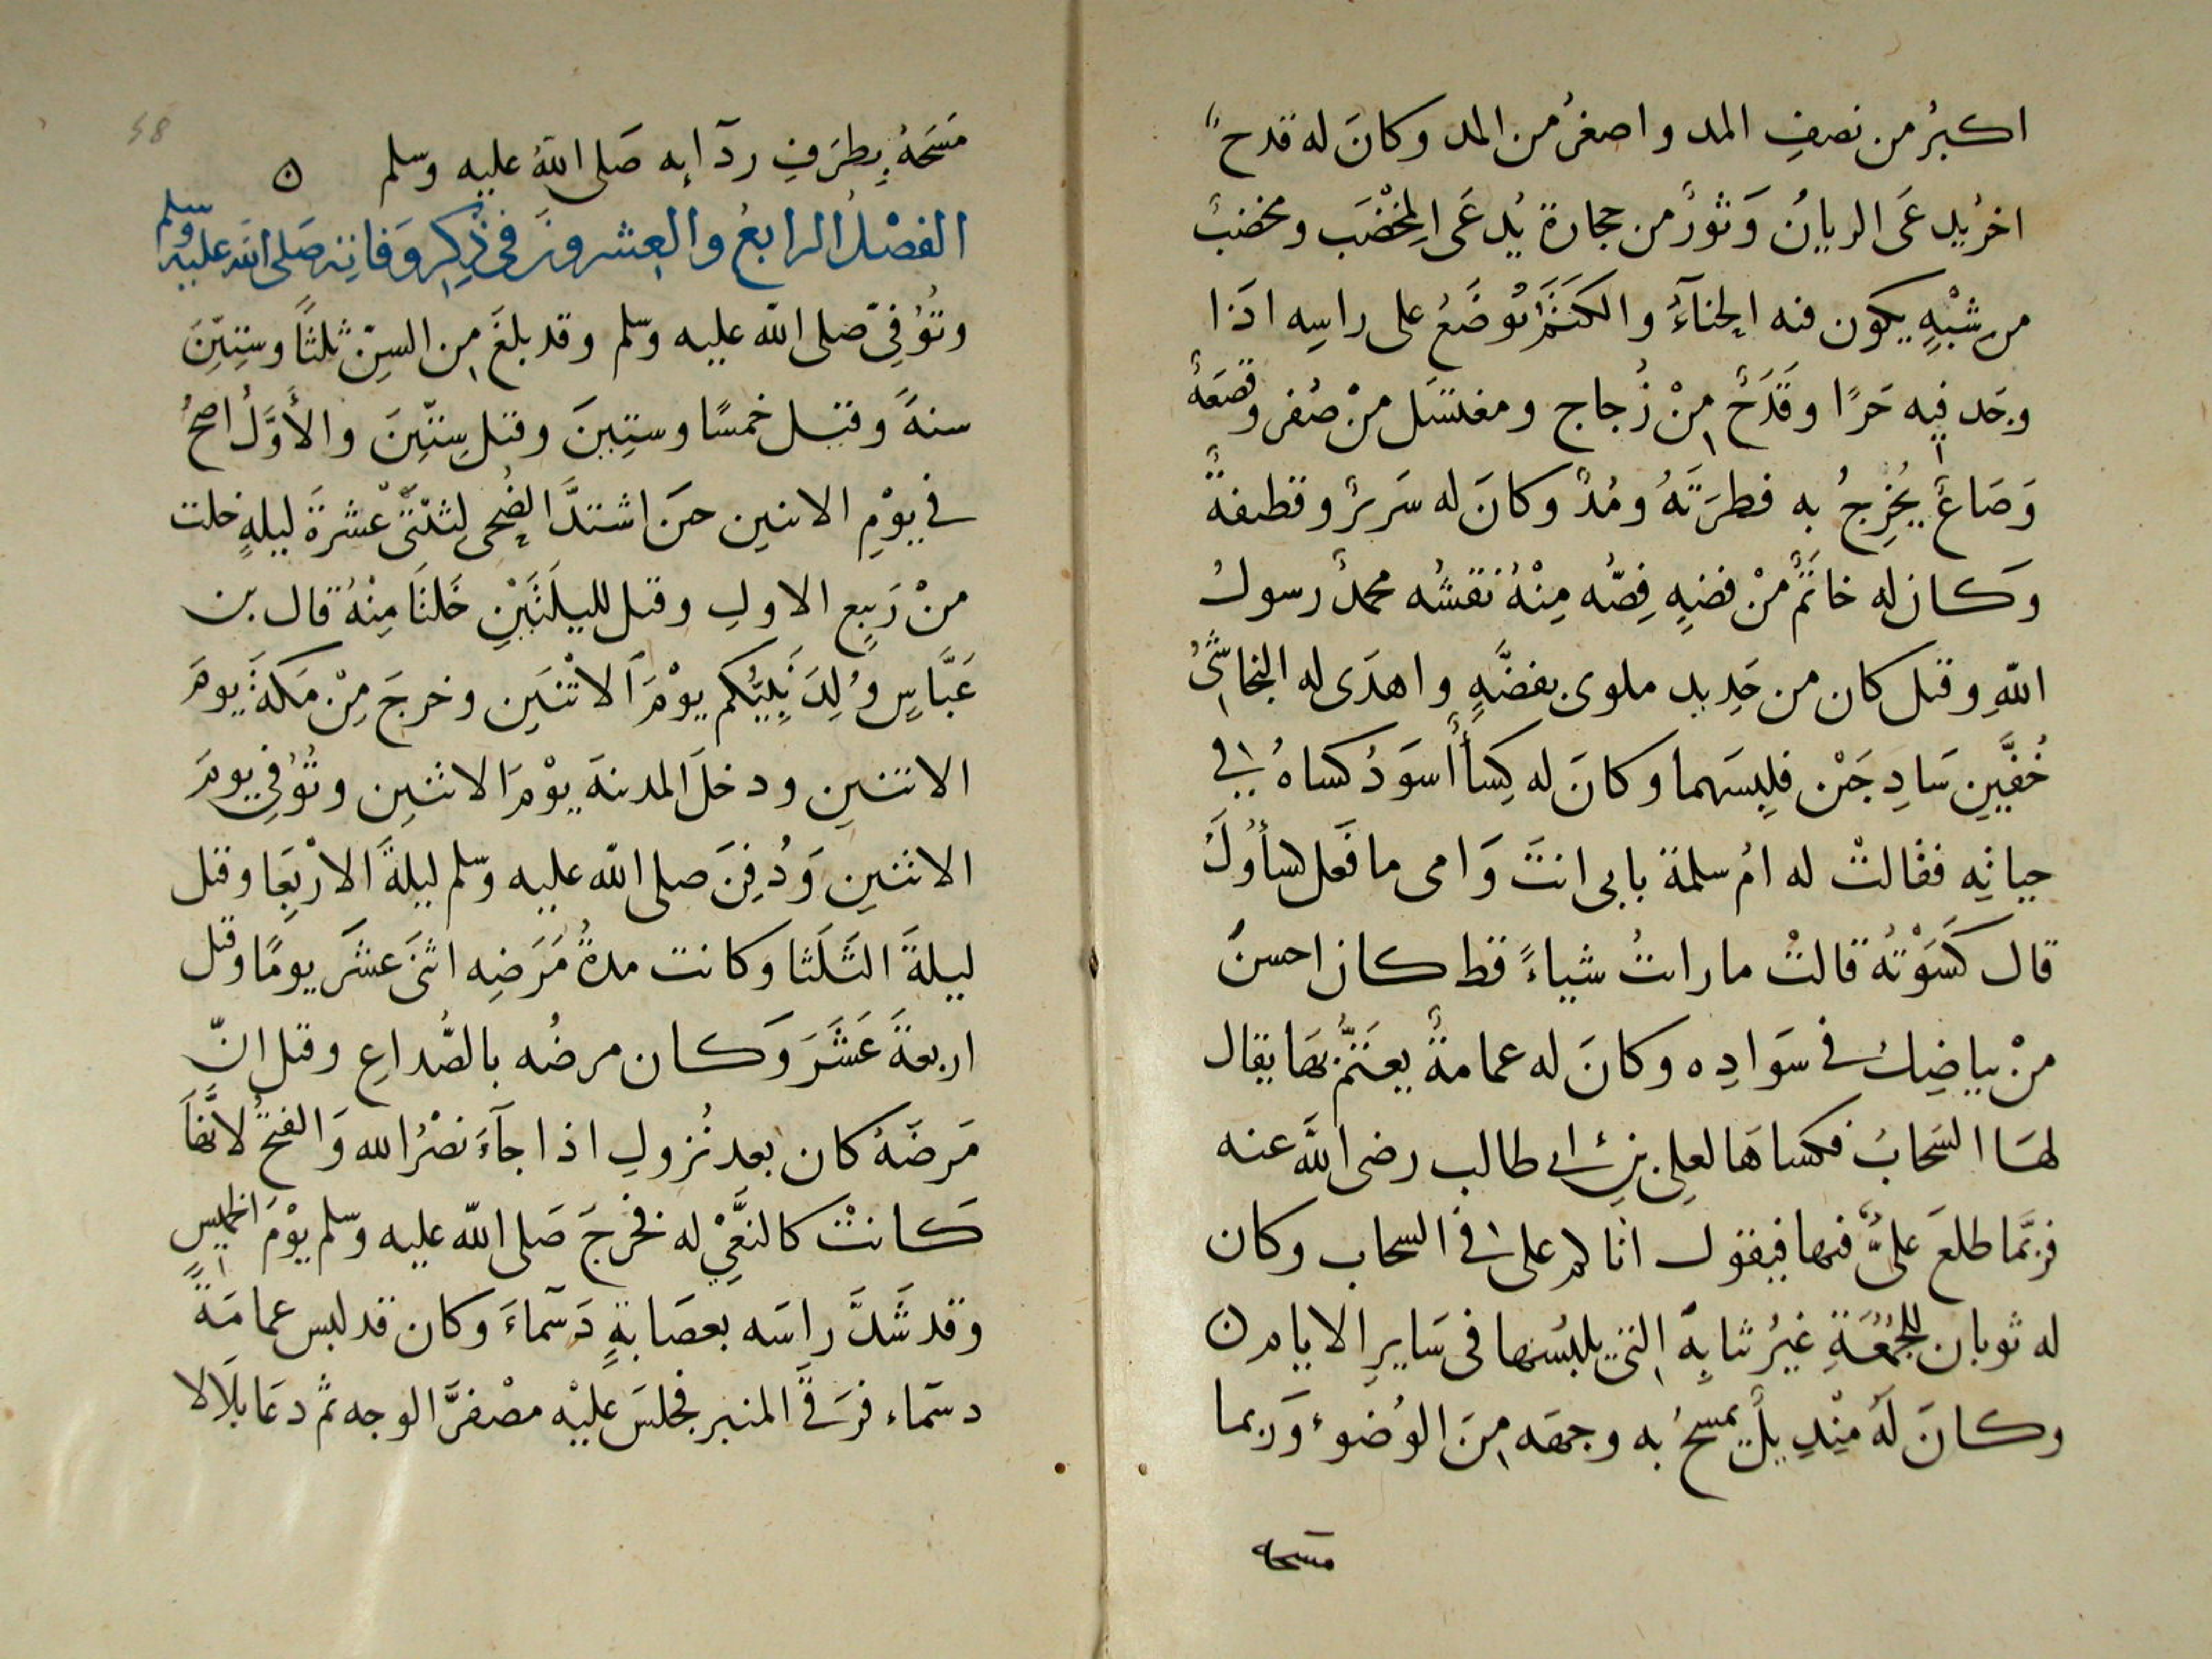 اكبرُ من نصفِ المد واصغرُ من المد وكانَ له قدحٌ
اخرُ يدعَى الريانُ وَثورٌ من حجارة يُدعَى المِخْضَب ومخضبٌ
من شَبْهٍ يكون فيه الحِنآءُ والكَتَمُ تُوضَعُ على راسِه اذا
وجَد فِيه حَرًا وقَدَحٌ مِنْ زُجاج ومغتسَل منْ صُفر وقصعَةٌ
وَصَاعٌ يُخْرِجُ به فطرَتَهُ ومُدٌ وكانَ له سَريرٌ وقطيفةٌ
وَكان له خاتَمٌ منْ فضةٍ فِصُّه مِنْهُ نَقشُه محمدٌ رسولُ
اللّهِ وقيل كان من حَدِيد ملوى بفضَّةٍ واهدَى له النجاشِيُّ
خُفَّيْنِ سَاذِجَيْن فلبِسَهما وكانَ له كِسَأٌ أسوَدُ كساهُ في
حياتِه فقالتْ له امُ سلمة بابى انتَ وَامى ما فَعَل كسأوكَ
قال كَسَوْتُهُ قالتْ ما رايتُ شياءً قط كان احسنَ
منْ بياضِكَ في سَوَادِه وكانَ له عمامةٌ يعتَمُّ بهَا يقال
لهَا السَحابُ فكساهَا لعلِى بن ابى طالب رضى اللّه عنه
فربَّما طلعَ علىٌّ فيها فيقول اتاكم على في السحاب وكان
له ثوبان للجُمُعَةِ غيرُ ثيابِهِ التي يلبسُها فى سَايرِ الايام ن
وكانَ لَهُ مِنْدِيلٌ يمسحُ به وجهَه مِنَ الوُضوءِ وَربما
مسحه
58
مَسَحَهُ بِطرَفِ ردآإِه صَلى اللّهُ عليه وسلم ن
الفصْلُ الرابعُ والعِشرونَ فى ذِكِر وَفاتِه صَلى اللّه عليه وسلم
وتُوُفِيّ صلى اللّه عليه وسلم وقد بلغَ مِن السِنّ ثلثًا وسِتِيّنَ
سنةً وقيل خمسًا وستِينَ وقيل سِتّينَ والأوَّلُ اصحُ
في يوْمِ الاثنين حينَ اشتدَّ الضُحى لثنتَىْ عْشرةَ ليلةٍ خلت
منْ رَبيعِ الاولِ وقيل لليلَتَيْنِ خَلتَا مِنْهُ قال بن
عَبَّاسٍ وُلِدَ نَبِيُّكم يوْمَ الاثْنَين وخرجَ مِنْ مَكةَ يومَ
الاثنينِ ودخلَ المدينةَ يوْمَ الاثنين وتُوُفِي يومَ
الاثنينِ وَدُفِنَ صلى اللّه عليه وسلم ليلةَ الارْبِعَا وقيل
ليلةَ الثَلَثا وكانت مدةُ مَرَضِه اثنَى عشَر يومًا وقيل
اربعةَ عَشَرَ وَكان مرضُه بالصُّداعِ وقيل انّ
مَرضَهُ كان بعد نُزولِ اذا جآءَ نصْرُ الله وَالفتحُ لانّهاَ
كَانتْ كالنَعِّيْ له فخرجَ صَلى اللّه عليه وسلم يوْمَ الخميسِ
وقد شَدَّ راسَه بعصَابةٍ دَسَماءَ وكان قد لبس عمامَةً
دسَماء فرَقَي المنبر فجلسَ عليْه مصْفرَّ الوجه ثمّ دعَا بلاَلا